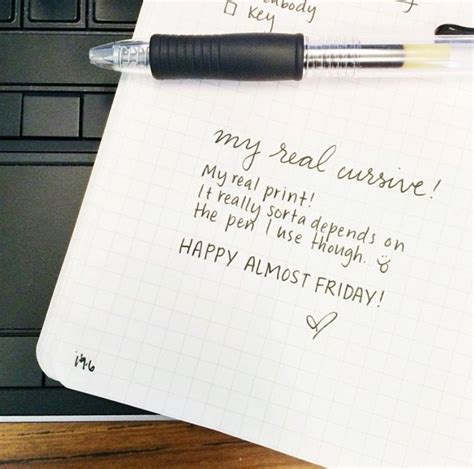 Key
my real cursive!
My real print!
It really sorta depends on
the pen I use though.
HAPPY ALMOST FRIDAY!